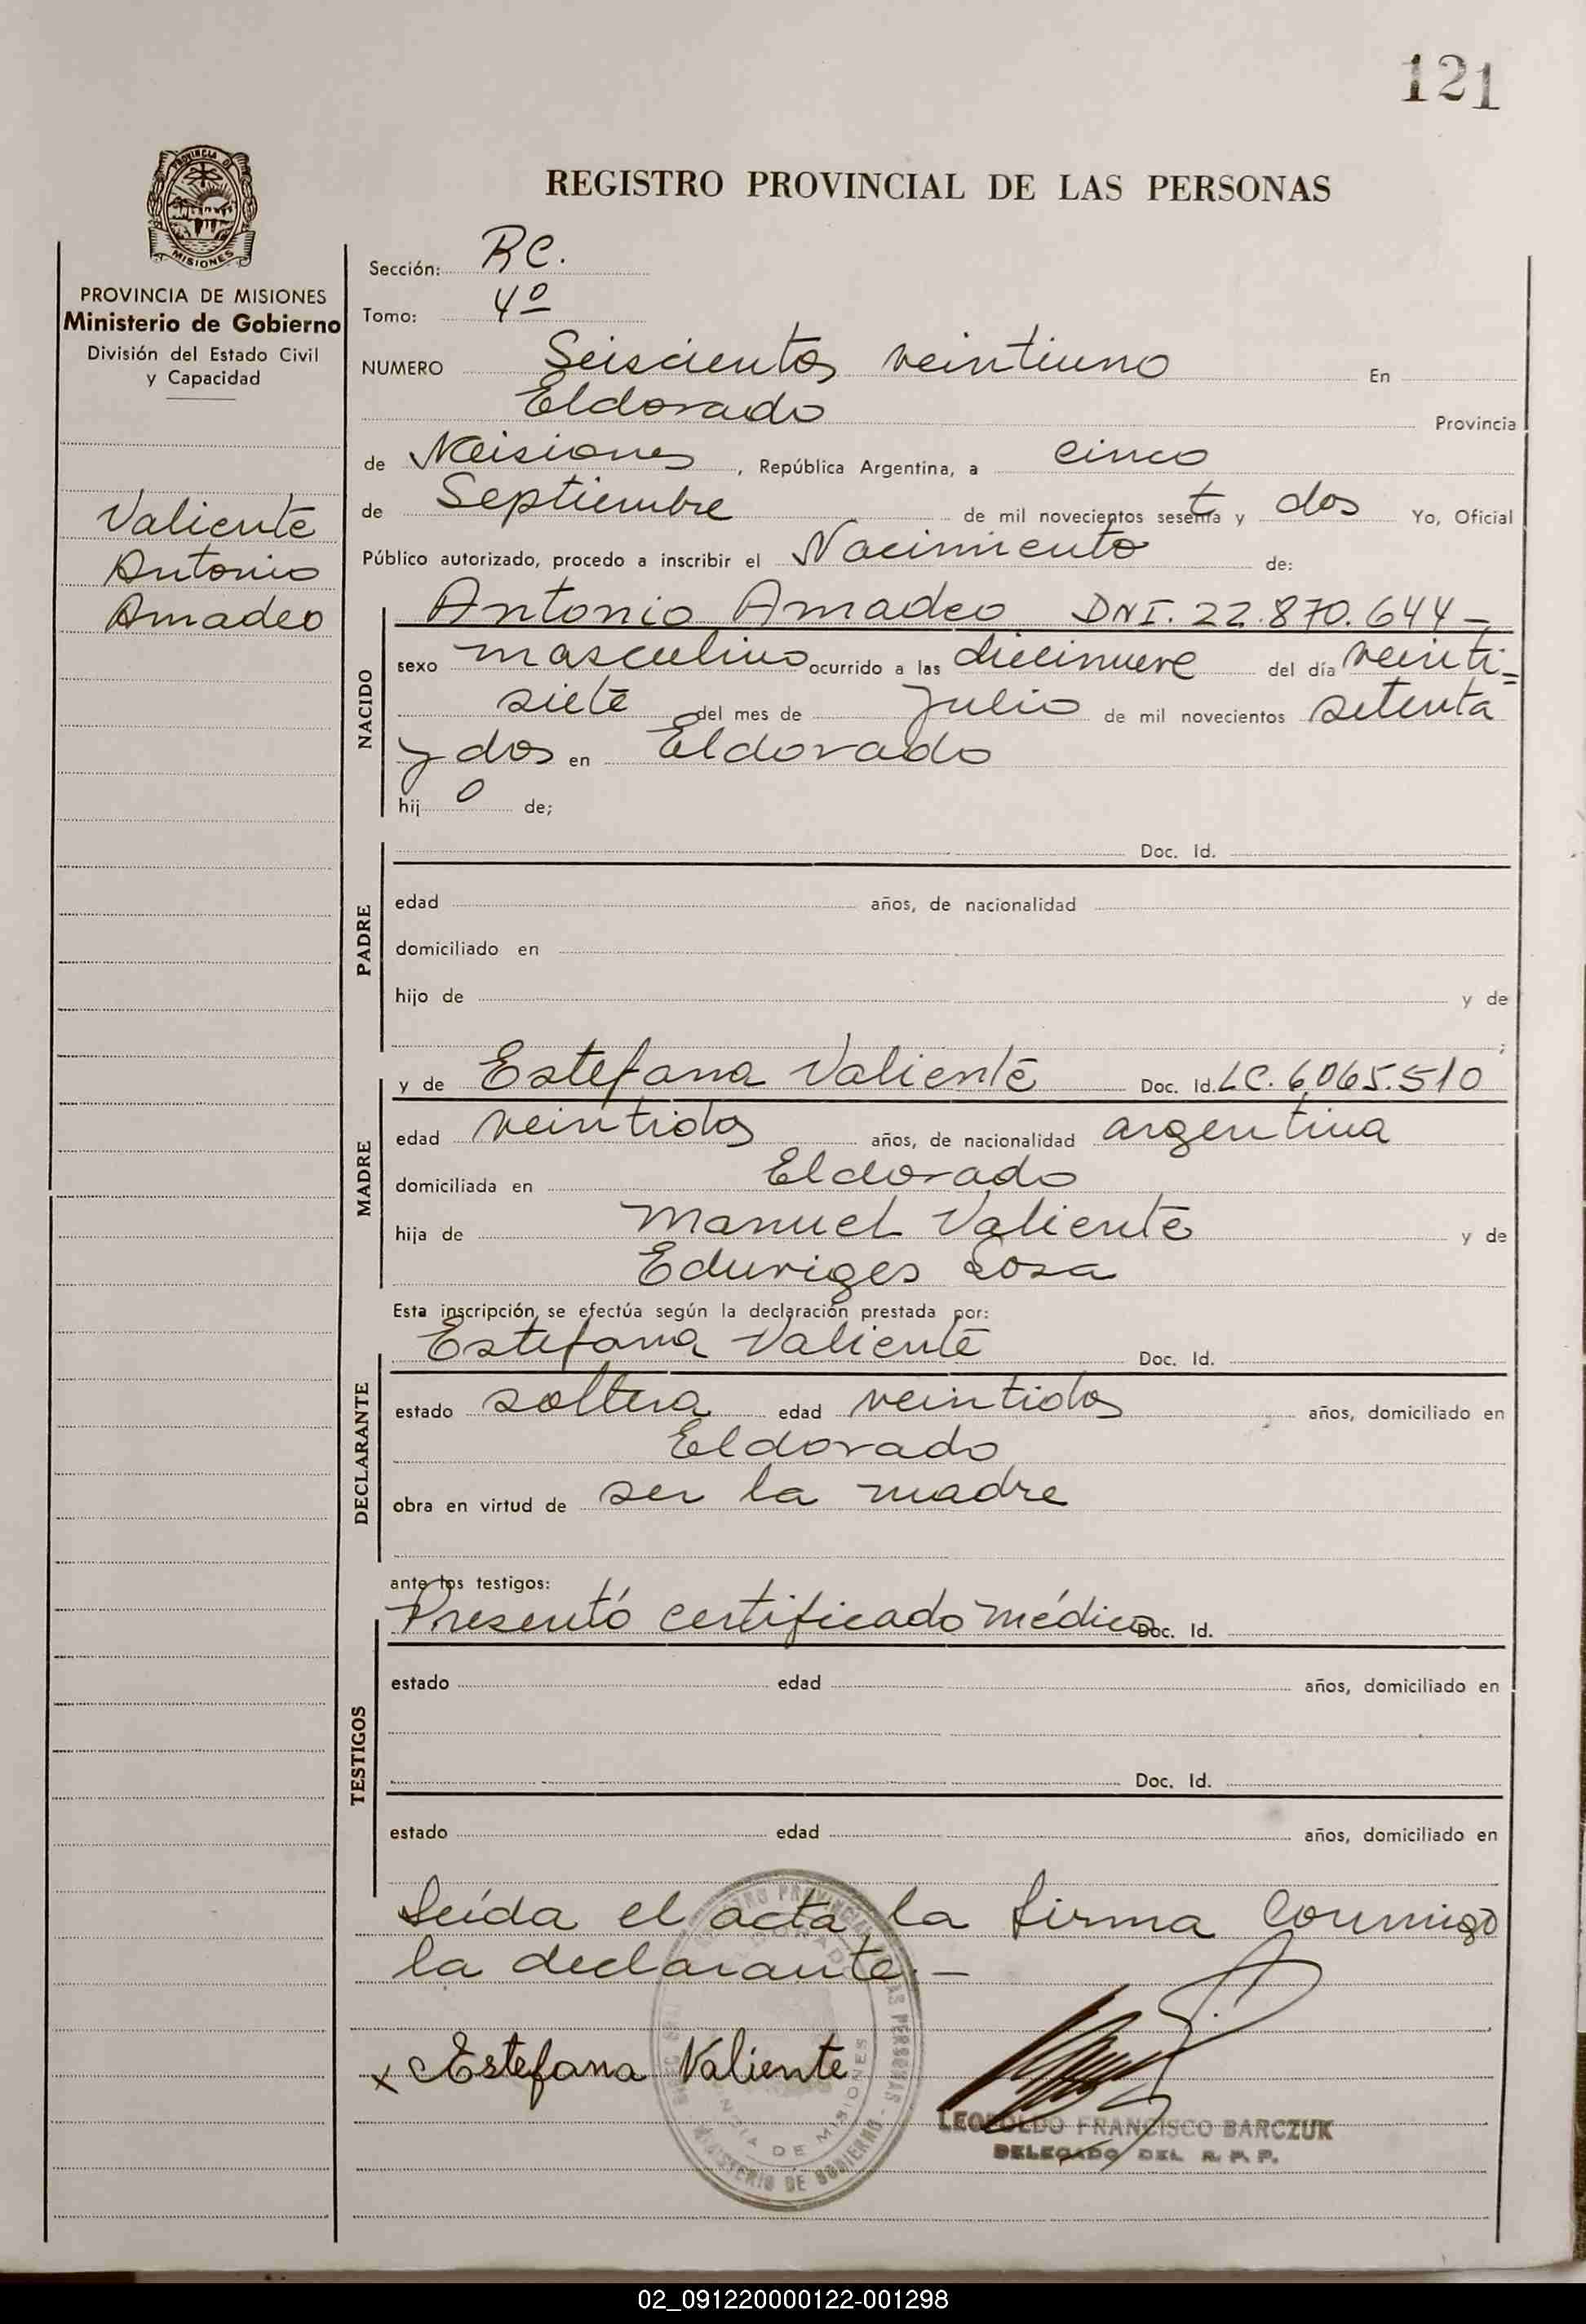 121
PROVINCIA DE
MISIONES
REGISTRO PROVINCIAL DE LAS PERSONAS
PROVINCIA DE MISIONES
Ministerio de Gobierno
División del Estado Civil
y Capacidad
Valiente
Antonio
Amadeo
Sección: RC.
Tomo: 4º
NUMERO Seiscientos veintiuno En
Eldorado Provincia
de Misiones, República Argentina, a cinco
de Septiembre de mil novecientos sesenta y dos Yo, Oficial
Público autorizado, procedo a inscribir el Nacimiento de:
NACIDO
Antonio Amadeo DNI. 22.870.644-
sexo masculino ocurrido a las diecinueve del día veinti=
siete del mes de Julio de mil novecientos setenta
y dos en Eldorado
hij o de;
PADRE
Doc. Id.
edad años, de nacionalidad
domiciliado en
hijo de y de
;
MADRE
y de Estefana Valiente Doc. Id. LC. 6065.510
edad veintidos años, de nacionalidad argentina
domiciliada en Eldorado
hija de Manuel Valiente y de
Eduviges Sosa
Esta inscripción, se efectúa según la declaración prestada por:
DECLARANTE
Estefana Valiente Doc. Id.
estado soltera edad veintidos años, domiciliado en
Eldorado
obra en virtud de ser la madre
ante los testigos:
TESTIGOS
Presentó certificado médico Doc. Id.
estado edad años, domiciliado en
Doc. Id.
estado edad años, domiciliado en
Leída el acta, la firma conmigo
la declarante.-
x Estefana Valiente
REGISTRO PROVINCIAL DE LAS PERSONAS
MINISTERIO DE GOBIERNO
ELDORADO
PROVINCIA DE MISIONES
LEOPOLDO FRANCISCO BARCZUK
DELEGADO DEL R. P. P.
02_091220000122-001298